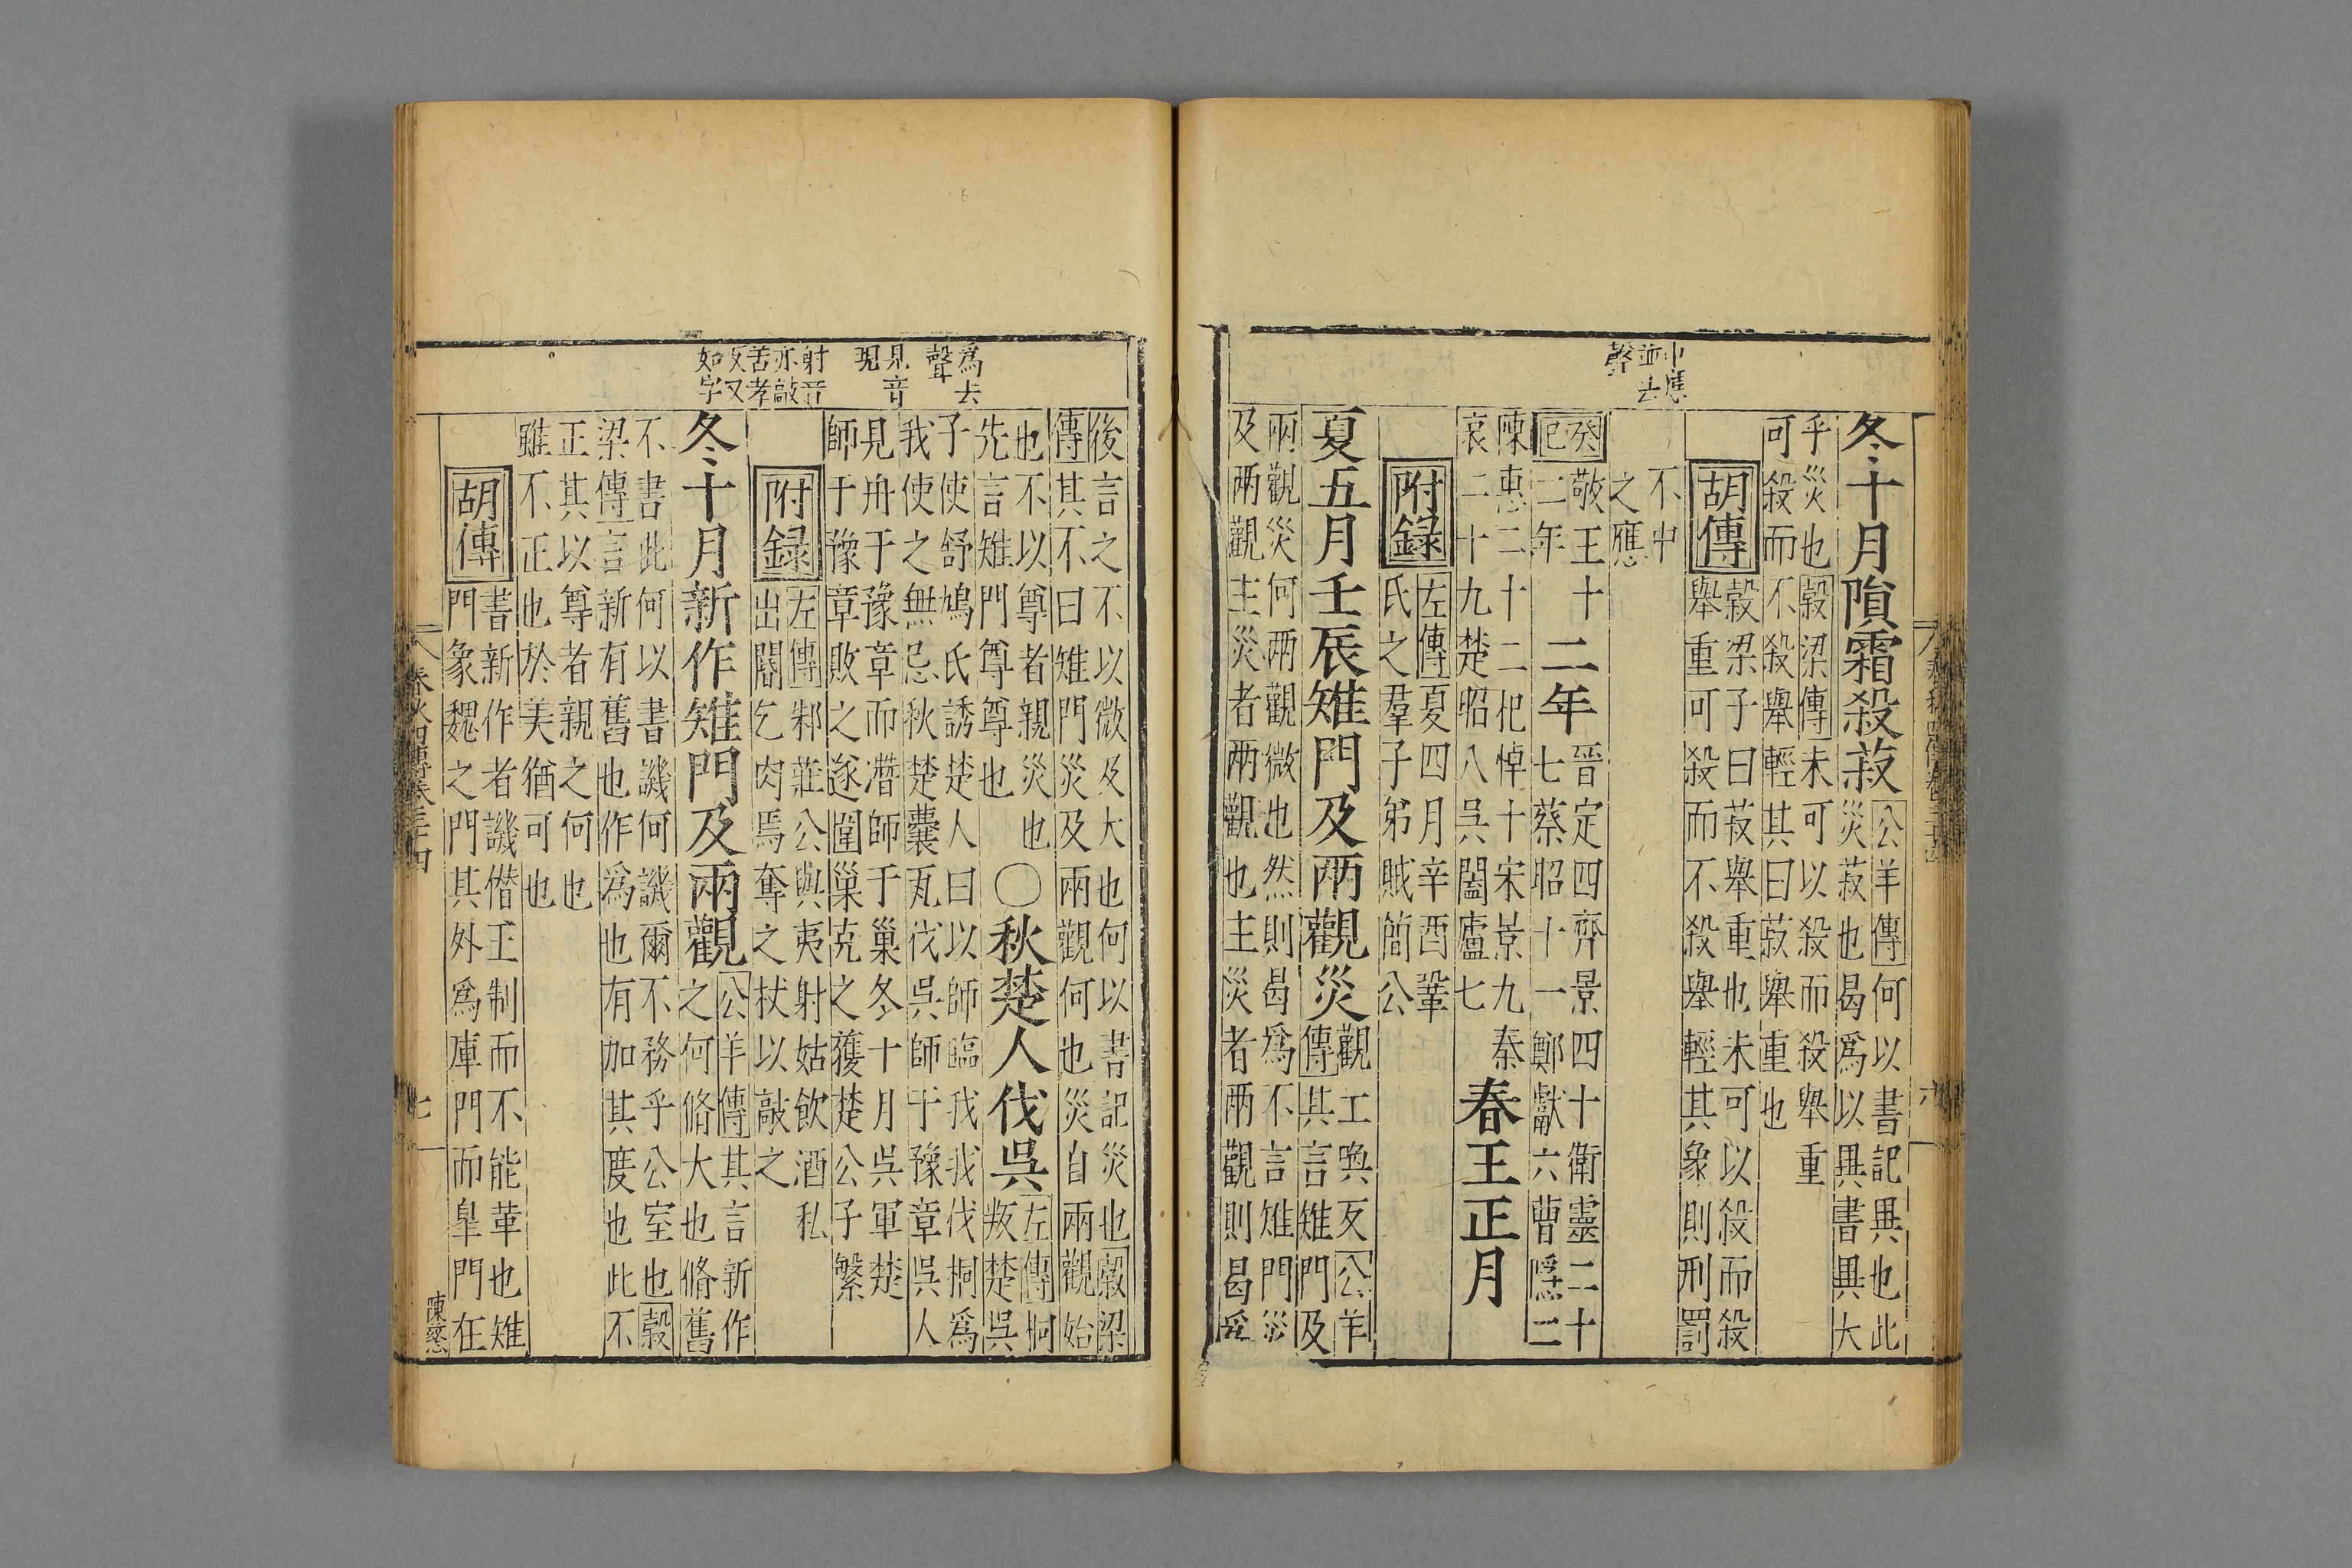 中應
並去
聲
冬十月隕霜殺菽
公羊傳何以書記異也此
災菽也曷爲以異書異大
乎災也穀梁傳未可以殺而殺舉重
可殺而不殺舉輕其曰菽舉重也
胡傳
穀梁子曰菽舉重也未可以殺而殺
舉重可殺而不殺舉輕其象則刑罰
不中
之應
癸巳
敬王十
二年
二年
晉定四齊景四十衛靈二十
七蔡昭十一鄭獻六曹隱二
陳惠二十二杞悼十宋景九秦
哀二十九楚昭八吳闔廬七
春王正月
附録
左傳夏四月辛酉鞏
氏之羣子弟賊簡公
夏五月壬辰雉門及兩觀災
觀工喚反公羊
傳其言雉門及
兩觀災何兩觀微也然則曷爲不言雉門災
及兩觀主災者兩觀也主災者兩觀則曷爲
爲去
聲
見音
現
射音
亦敲
苦孝
反又
如字
後言之不以微及大也何以書記災也穀梁
傳其不曰雉門災及兩觀何也災自兩觀始
也不以尊者親災也
先言雉門尊尊也
○秋楚人伐吳
左傳桐
叛楚吳
子使舒鳩氏誘楚人曰以師臨我我伐桐爲
我使之無忌秋楚囊瓦伐吳師于豫章吳人
見舟于豫章而潛師于巢冬十月吳軍楚
師于豫章敗之遂圍巢克之獲楚公子繁
附録
左傳邾莊公與夷射姑飲酒私
出閽乞肉焉奪之杖以敲之
冬十月新作雉門及兩觀
公羊傳其言新作
之何脩大也脩舊
不書此何以書譏何譏爾不務乎公室也穀
梁傳言新有舊也作爲也有加其度也此不
正其以尊者親之何也
雖不正也於美猶可也
胡傳
書新作者譏僭王制而不能革也雉
門象魏之門其外爲庫門而皐門在
春秋四傳卷三十四
七